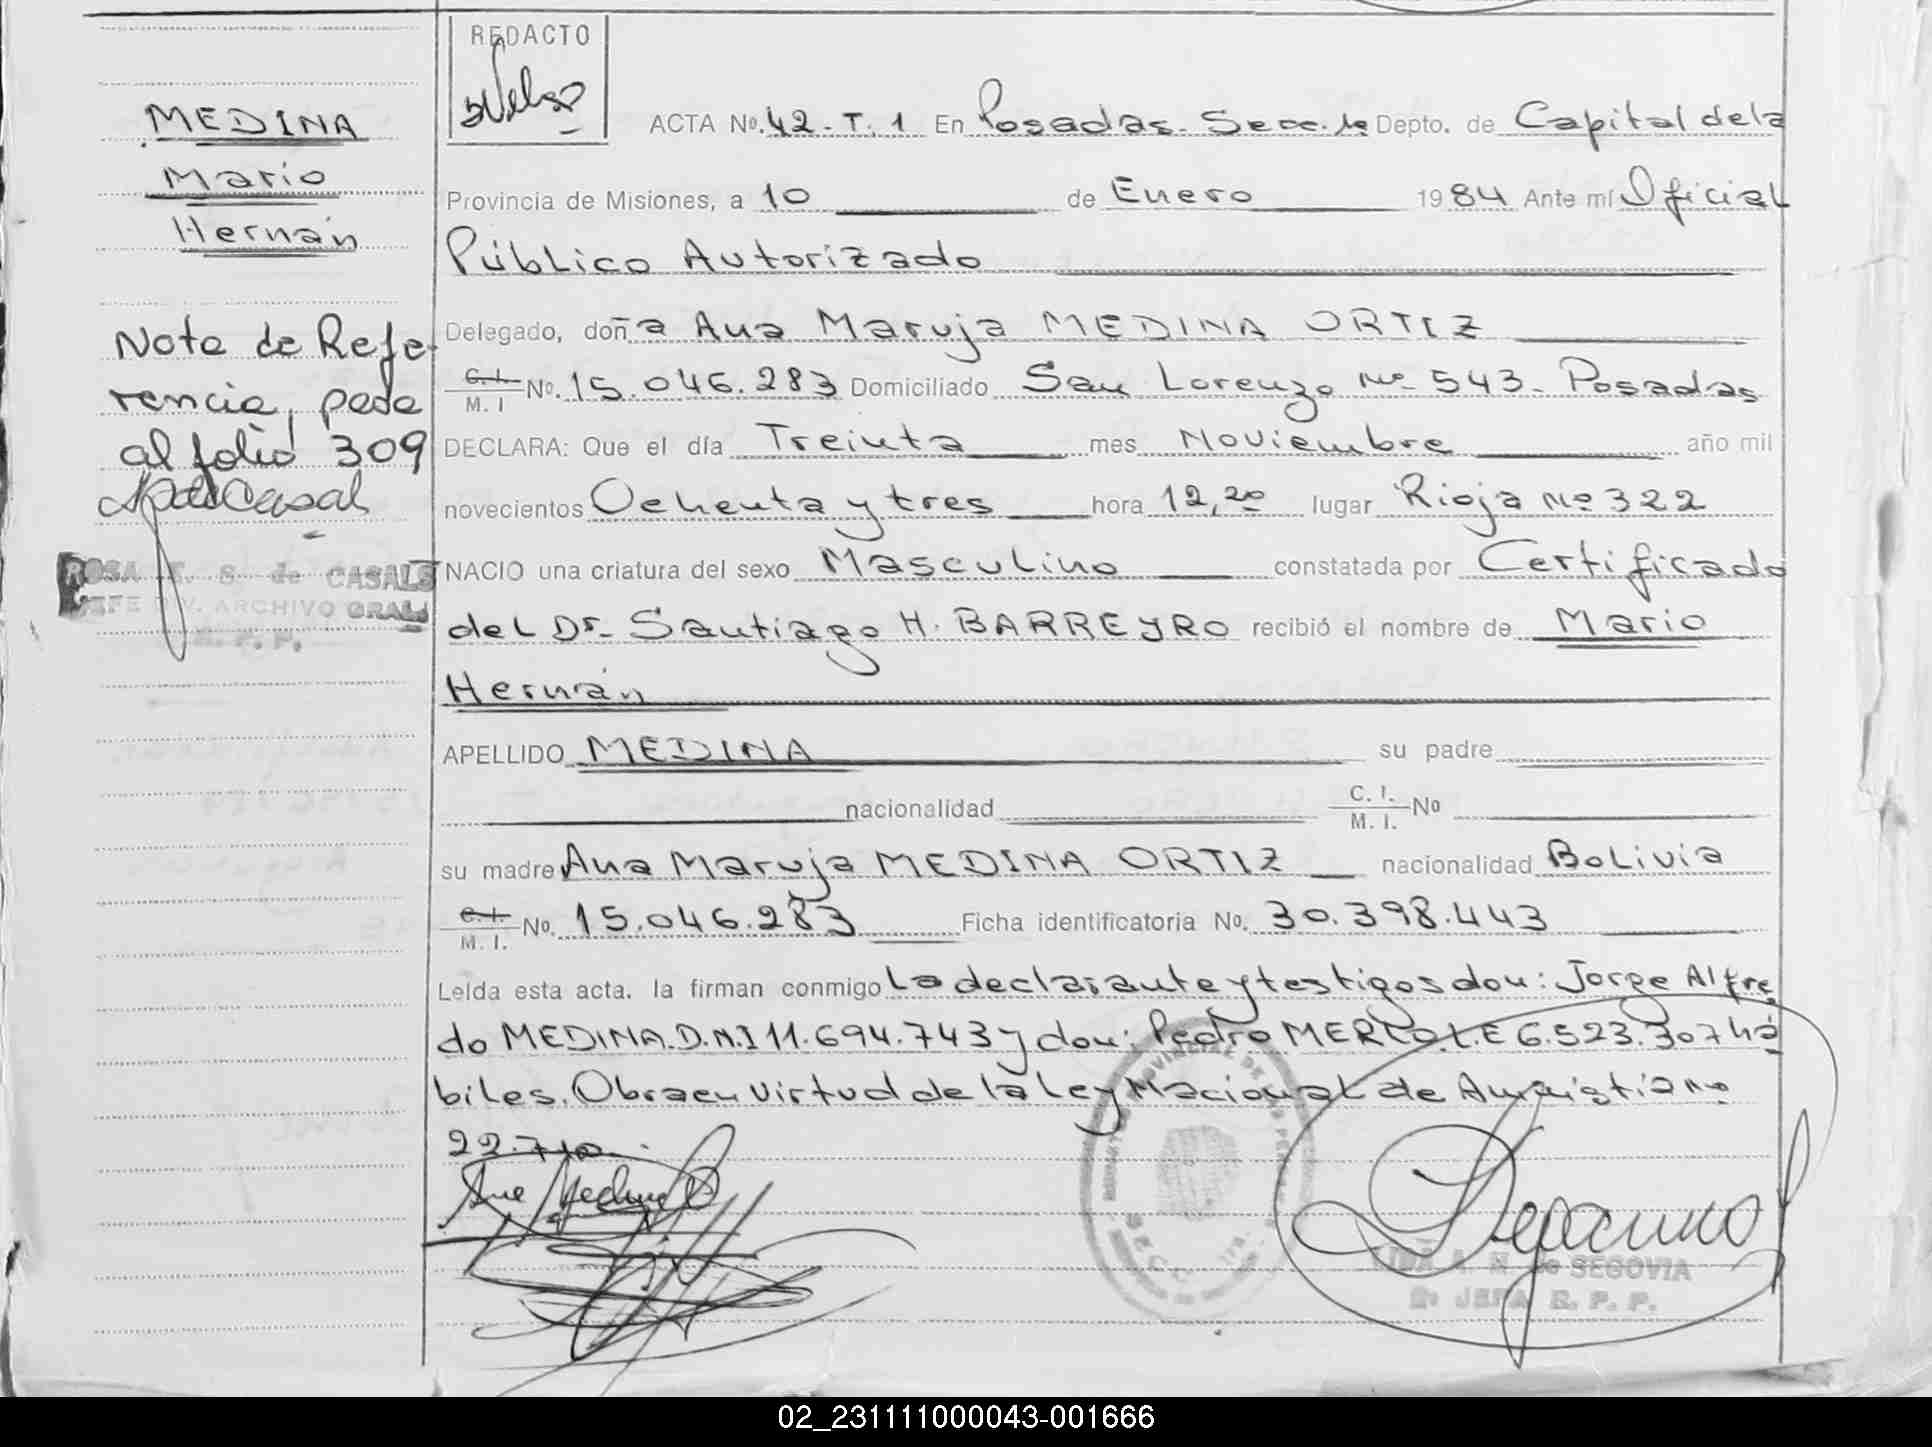 MEDINA
Mario
Hernán
Nota de Refe-
rencia, pasa
al folio 309
ROSA E. S. de CASALS
JEFE DIV. ARCHIVO GRAL
R. P. P.
REDACTO
ACTA Nº. 42 - T. 1 En Posadas. Secc. 1ª Depto. de Capital de la
Provincia de Misiones, a 10 de Enero 1984 Ante mí Oficial
Público Autorizado
Delegado, doña Ana Maruja MEDINA ORTIZ
C. I. M. I Nº. 15.046.283 Domiciliado San Lorenzo Nº 543 - Posadas
DECLARA: Que el día Treinta mes Noviembre año mil
novecientos Ochenta y tres hora 12,20 lugar Rioja Nº 322
NACIO una criatura del sexo Masculino constatada por Certificado
del Dr. Santiago H. BARREYRO recibió el nombre de Mario
Hernán
APELLIDO MEDINA su padre
nacionalidad C. I. M. I. Nº
su madre Ana Maruja MEDINA ORTIZ nacionalidad Bolivia
C. I. M. I. Nº. 15.046.283 Ficha identificatoria Nº. 30.398.443
Leída esta acta. la firman conmigo la declarante y testigos don: Jorge Alfre
do MEDINA. D.N.I 11.694.743 y don: Pedro MERLO L.E 6.523.307 há
biles. Obra en virtud de la Ley Nacional de Amnistía Nº
22.710.
SEGOVIA
JEFA R. P. P.
02_231111000043-001666